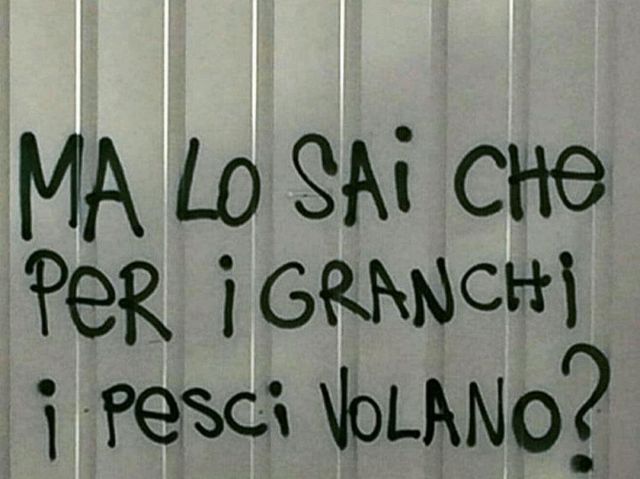 MA LO SAi CHe
PeR i GRANCHi
i PesCi VOLANO?